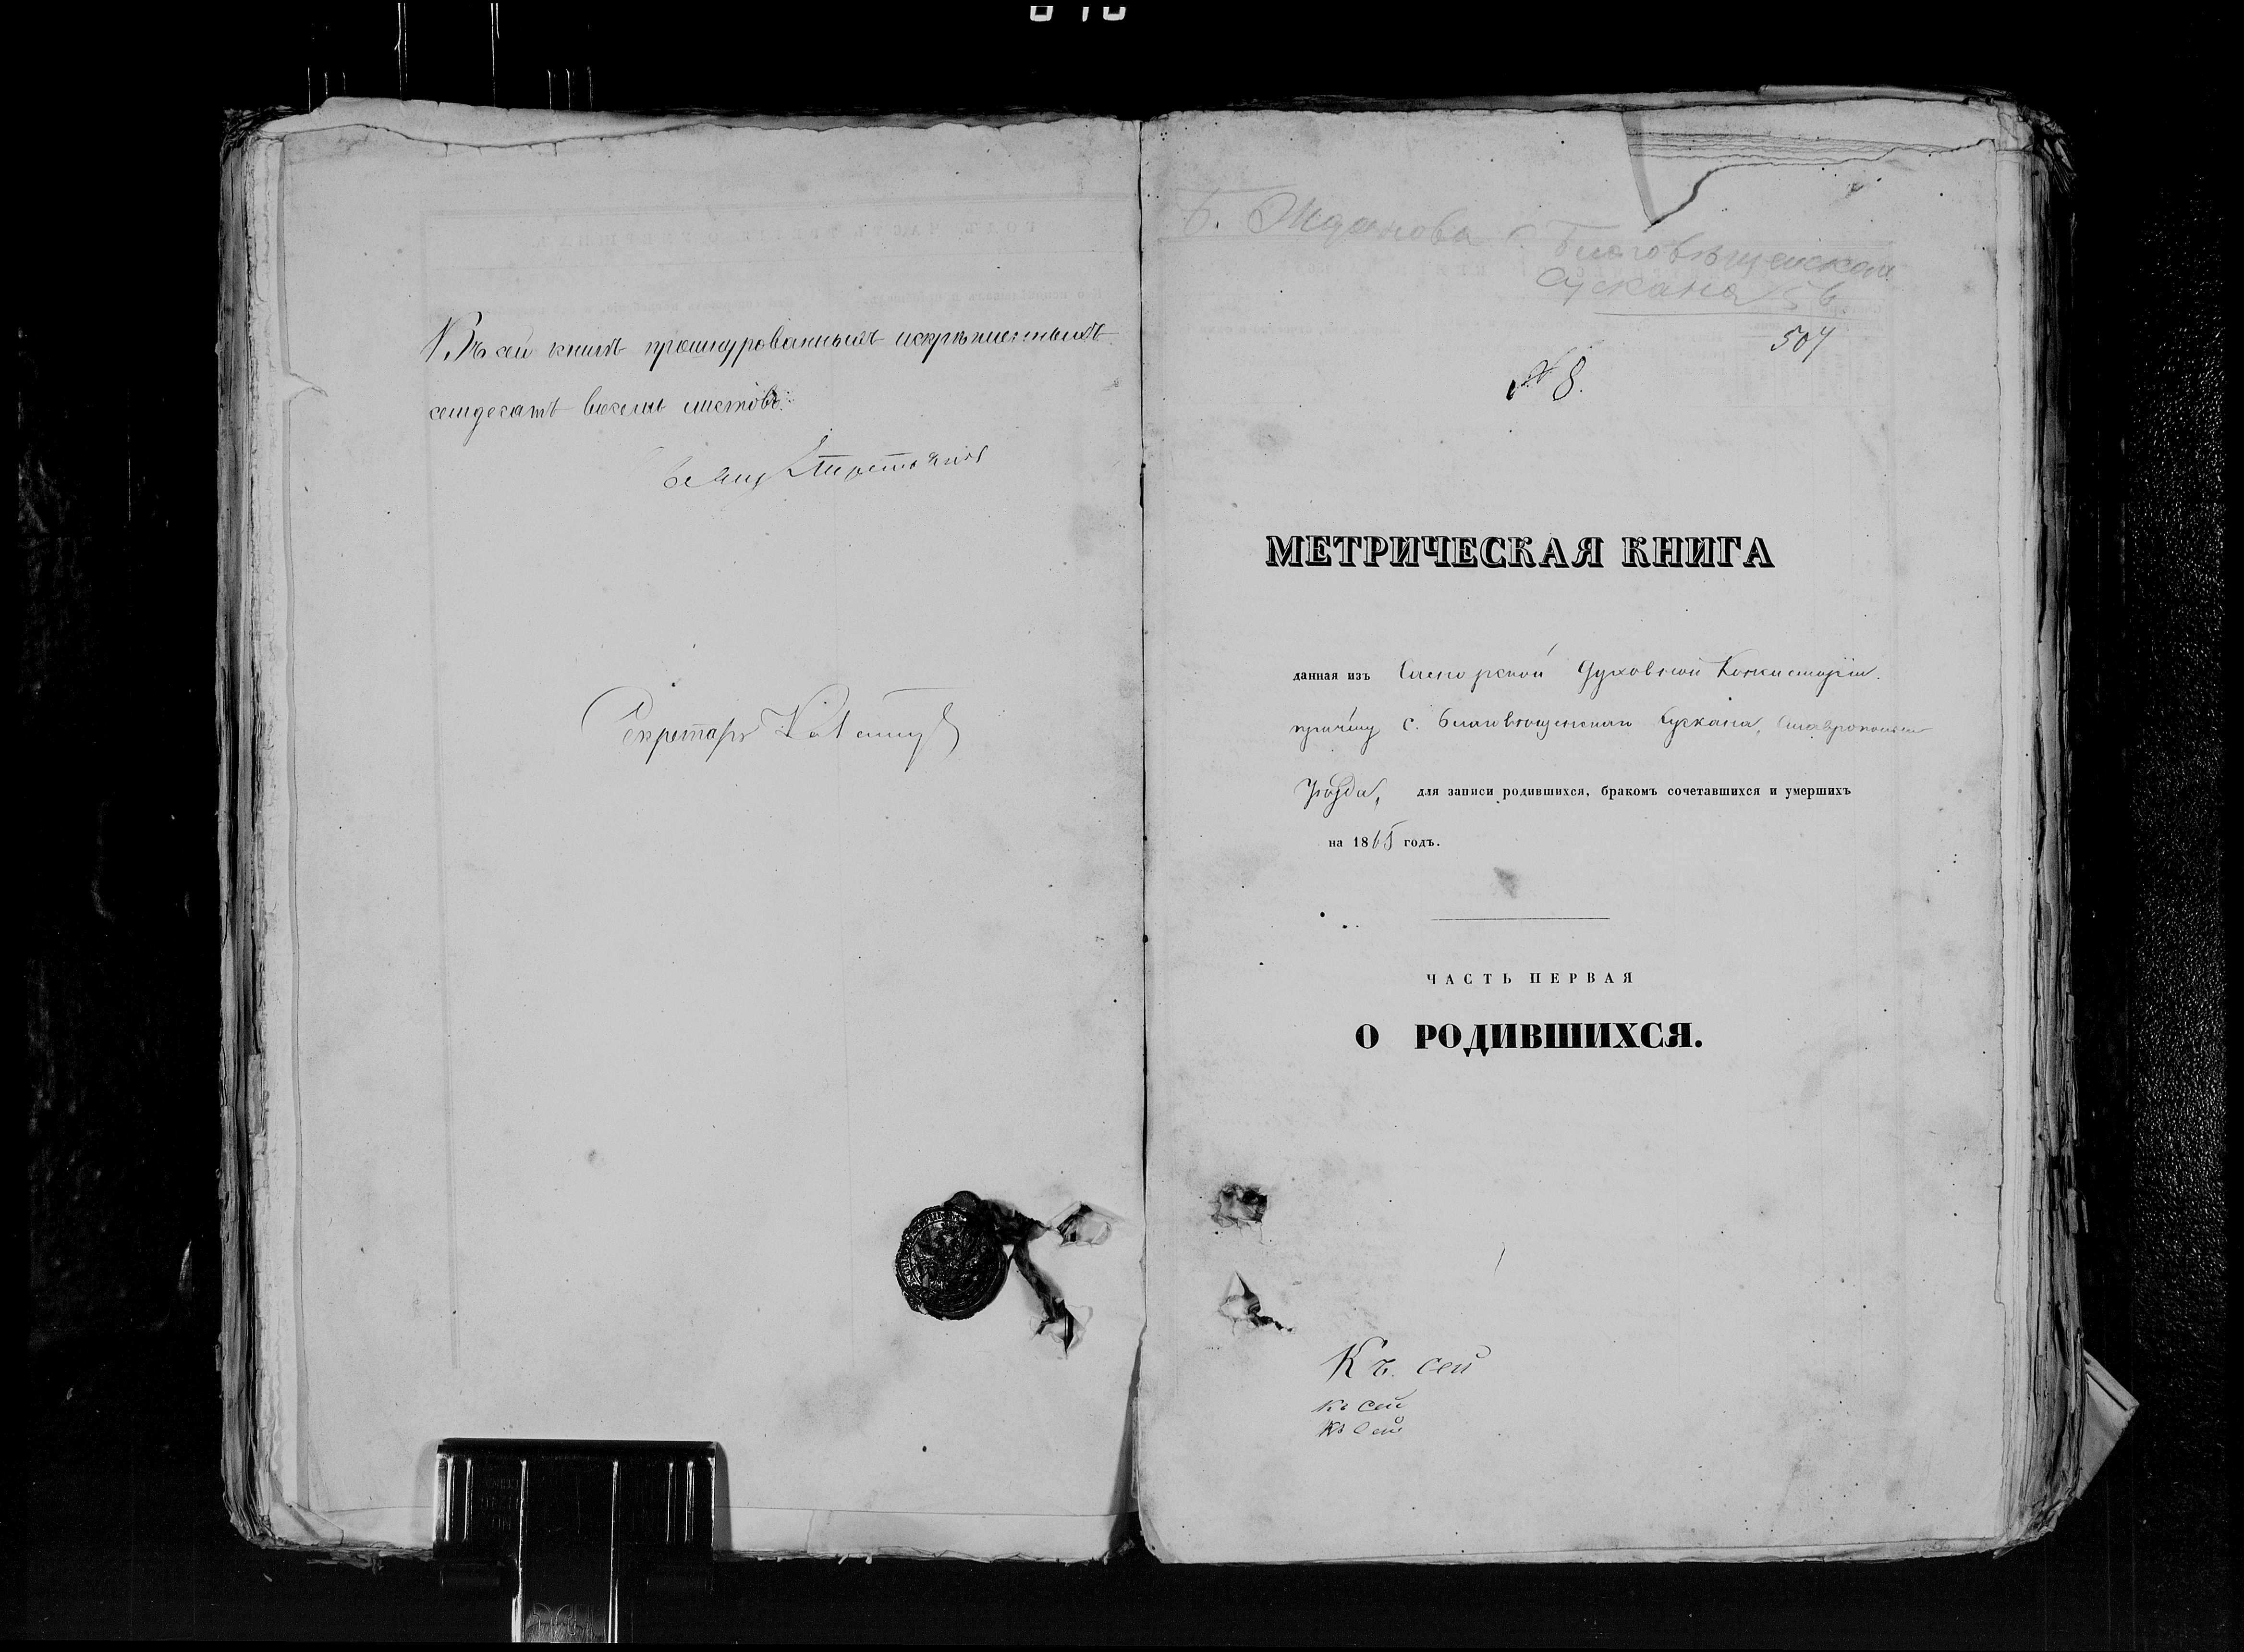 Въ сей книгѣ прошнурованныхъ искрѣпленныхъ
семдесятъ восемь листовъ.
Секретарь
Благовѣщенскаго
Сускана
504
№ 8.
МЕТРИЧЕСКАЯ КНИГА
данная изъ Самарской Духовной Консисторіи.
причту с. Благовѣщенскаго Сускана, Ставропольск
Уѣзда, для записи родившихся, бракомъ сочетавшихся и умершихъ
на 1865 годъ.
ЧАСТЬ ПЕРВАЯ
О РОДИВШИХСЯ.
Къ сей
Къ сей
Къ сей